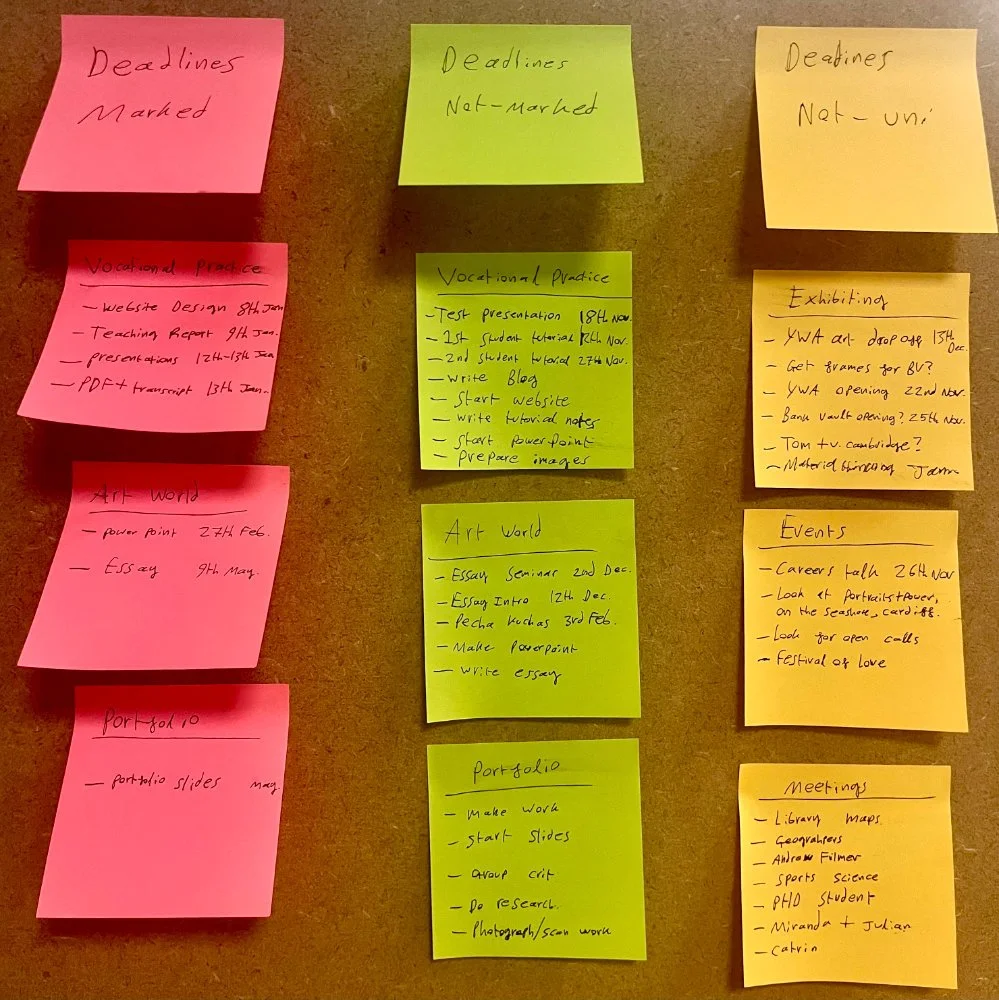 Deadlines
Marked
Vocational Practice
- Website Design 8th Jan
- Teaching Report 9th Jan.
- presentations 12th-13th Jan
- PDF + transcript 13th Jan.
Art World
- power point 27th Feb.
- Essay 9th May.
Portfolio
- portfolio slides may
Deadlines
Not-Marked
Vocational Practice
- Test presentation 18th Nov.
- 1st student tutorial 12th Nov.
- 2nd student tutorial 27th Nov.
- write Blog
- Start website
- write tutorial notes
- Start PowerPoint
- Prepare images
Art World
- Essay Seminar 2nd Dec.
- Essay Intro 12th Dec.
- Pecha Kuchas 3rd Feb.
- Make Powerpoint
- write essay
Portfolio
- Make work
- Start slides
- Group crit
- Do research.
- Photograph/scan work
Deadines
Not - uni
Exhibiting
- YWA art drop off 13th
Dec.
- Get frames for BV?
- YWA opening 22nd Nov.
- Bank vault opening? 25th Nov.
- Tom + v. cambridge?
- Material thinking
Events
- Careers talk 26th Nov
- Look at Portraits + power,
on the seashore, cardiff.
- Look for open calls
- Festival of Love
Meetings
- Library maps
- Geograhers
- Andrew Filmer
- Sports Science
- PHD student
- Miranda + Julian
- Catrin